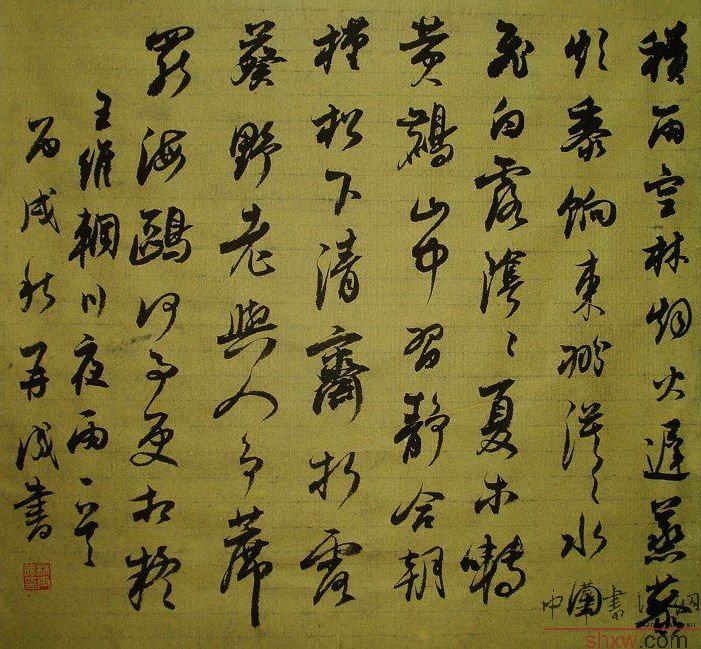 積雨空林烟火遲蒸藜
炊黍餉東菑漠々水
飛白露陰々夏木囀
黄鸝山中習靜合朝
槿松下清齋折露
葵野老與人爭蓆
罷海鷗何事更相疑
王維輞川夜雨一
丙戌秋再成書
shxw.com